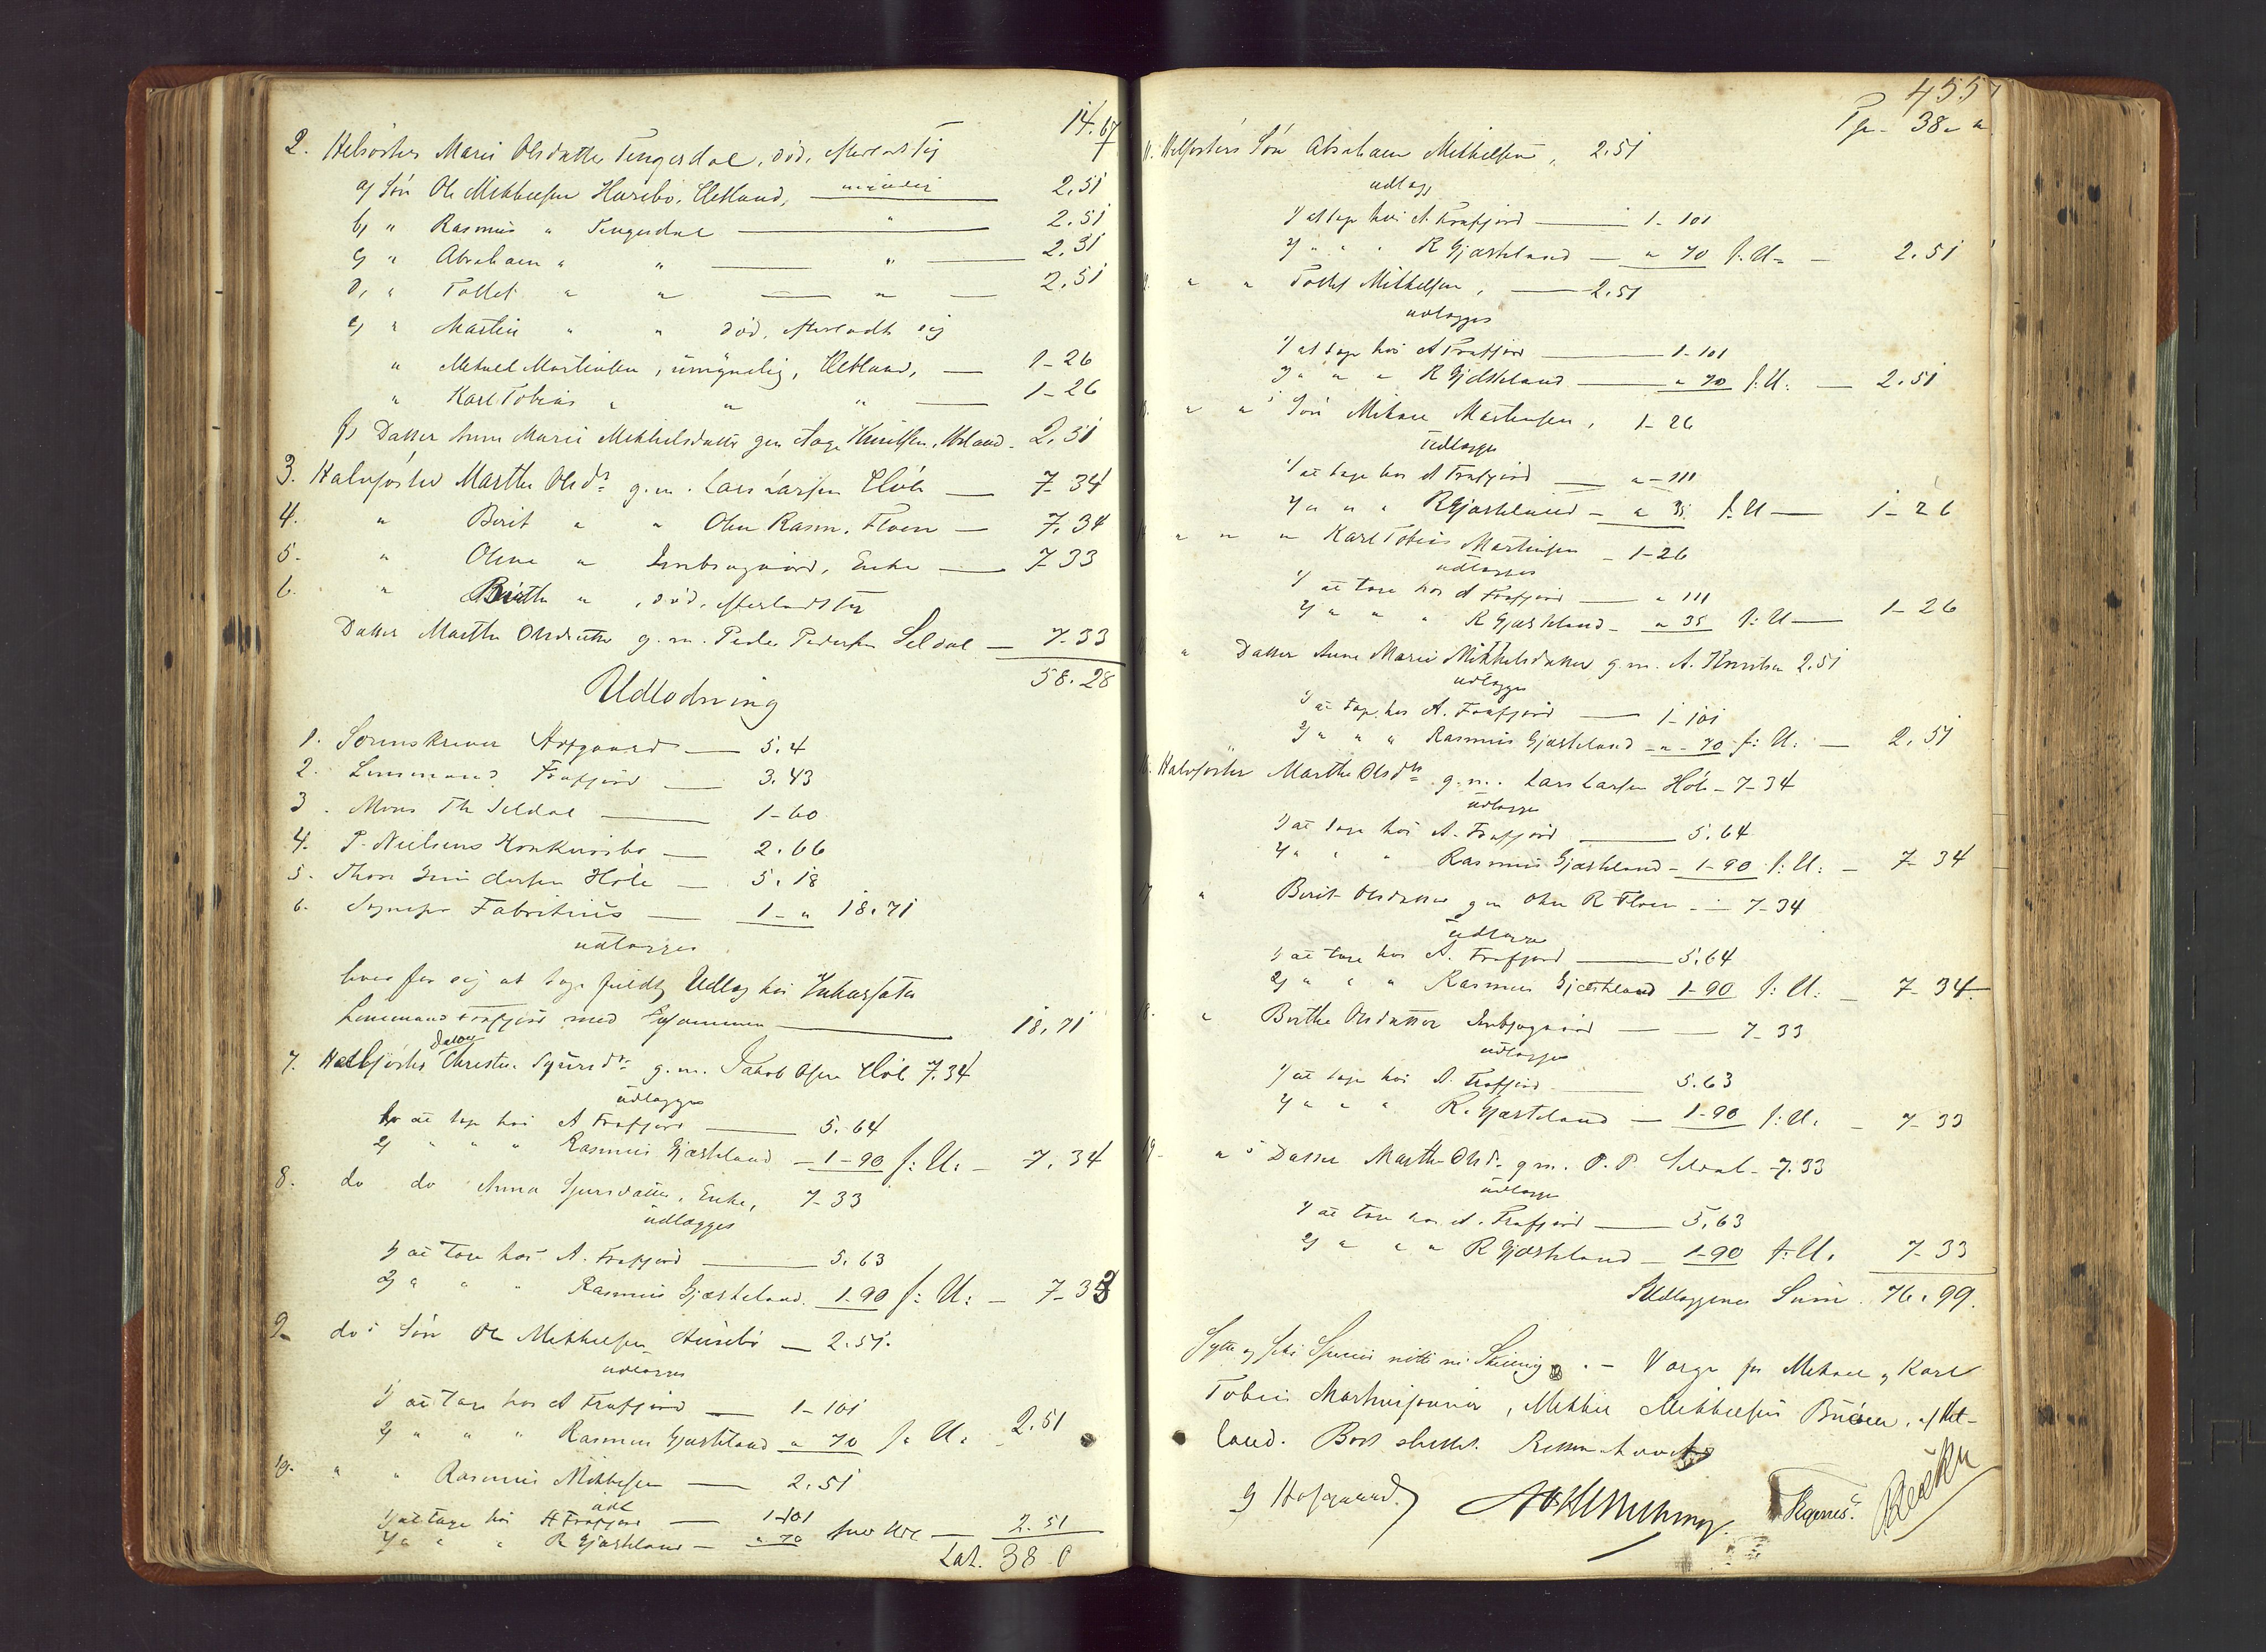 14.67
2. Helsøster Marie Olsdatter Tengesdal, død, efterladt sig
a) Søn Ole Mikkelsen Husebø, Hetland, myndig 2.51
b) " Rasmus " Tengesdal " 2.51
c) " Abraham " " " 2.51
d) " Tollef " " " 2.51
e) " Martin " " død, efterladt sig
" Mikael Martinsen, umyndig, Hetland, 1-26
" Karl Tobias " " " 1-26
f) Datter Anne Marie Mikkelsdatter gm Aage Knudsen, 2.51
3. Halvsøster Marthe Olsdr g.m. Lars Larsen Høle 7-34
4. " Berit " " Ole Rasm. Floen 7.34
5. " Olene " , Enke 7-33
6. " Birthe " , død, efterladt sig
Datter Marthe Olsdatter g.m. Peder Pedersen Seldal 7-33
58.28
Udlodning
1. Sorenskriver Hofgaard 5.4
2. Lensmand Frafjord 3.43
3. Mons Th Seldal 1-60
4. P. Nielsens Konkursbo 2.66
5. Thore Gundersen Høle 5.18
6. Fabritius 1-" 18.71
udlægges
hver for sig at tage fuldt Udlæg hos Inkassator
Lensmand Frafjord med tilsammen 18.71
7. Helsøsters Datter Christine Sjursdr g.m. Jakob Olsen Høle 7.34
udlægges
1) at tage hos A Frafjord 5.64
2) " " " Rasmus Gjesteland 1-90 f: U: 7.34
8. do do Anna Sjursdatter, Enke, 7-33
udlægges
1) at tage hos A. Frafjord 5.63
2) " " " Rasmus Gjesteland 1-90 f: U: 7-33
9. do s Søn Ole Mikkelsen Husebø 2.51
udlægges
1) at tage hos A Frafjord 1-101
2) " " " Rasmus Gjesteland " 70 f: U: 2.51
10. " " Rasmus Mikkelsen 2.51
udl
1) at tage hos A Frafjord 1-101
2) " " " R Gjesteland " 70 2.51
Lat. 38 0
455
Tp. 38 " "
11. Helsøsters Søn Abraham Mikkelsen, 2.51
udlægg
1) at tage hos A. Frafjord 1-101
2) " " " R Gjesteland " 70 f: U: 2.51
" " Tollef Mikkelsen, 2.51
udlægges
1) at tage hos A Frafjord 1-101
2) " " " R Gjesteland " 70 f: U: 2.51
" " s Søn Mikael Martinsen, 1-26
udlægges
1) at tage hos A Frafjord "-111
2) " " " R Gjesteland " 35 f: U 1-26
" " " Karl Tobias Martinsen 1-26
udlægges
1) at tage hos A Frafjord " 111
2) " " " R Gjesteland " 35 f: U 1-26
" Datter Anne Marie Mikkelsdatter g.m. A. Knudsen 2.51
udlægges
1) at tage hos A. Frafjord 1-101
2) " " " Rasmus Gjesteland "-70 f: U: 2.51
16. Halvsøster Marthe Olsdtr g.m. Lars Larsen Høle 7-34
udlægges
1) at tage hos A. Frafjord 5.64
2) " " " Rasmus Gjesteland 1-90 f: U: 7-34
17 " Berit Olsdatter gm Ole R Floen 7-34
udlægges
1) at tage hos A. Frafjord 5.64
2) " " " Rasmus Gjesteland 1-90 f: U: 7-34
18. " Berthe Olsdatter 7-33
udlægges
1) at tage hos A. Frafjord 5.63
2) " " " R. Gjesteland 1-90 f: U. 7-33
19. " s Datter Marthe Olsdr gm. P. P. Seldal 7.33
udlægges
1) at tage hos A. Frafjord 5.63
2) " " " R Gjesteland 1-90 f: U. 7-33
Udlæggenes Sum 76.99.
Sytti og sex Species nitti ni Skilling. Værge for Mikael og Karl
Tobias Martinssønner, Mikkel Mikkelsen af Het-
land. Boet sluttet. Retten hævet
G Hofgaard.